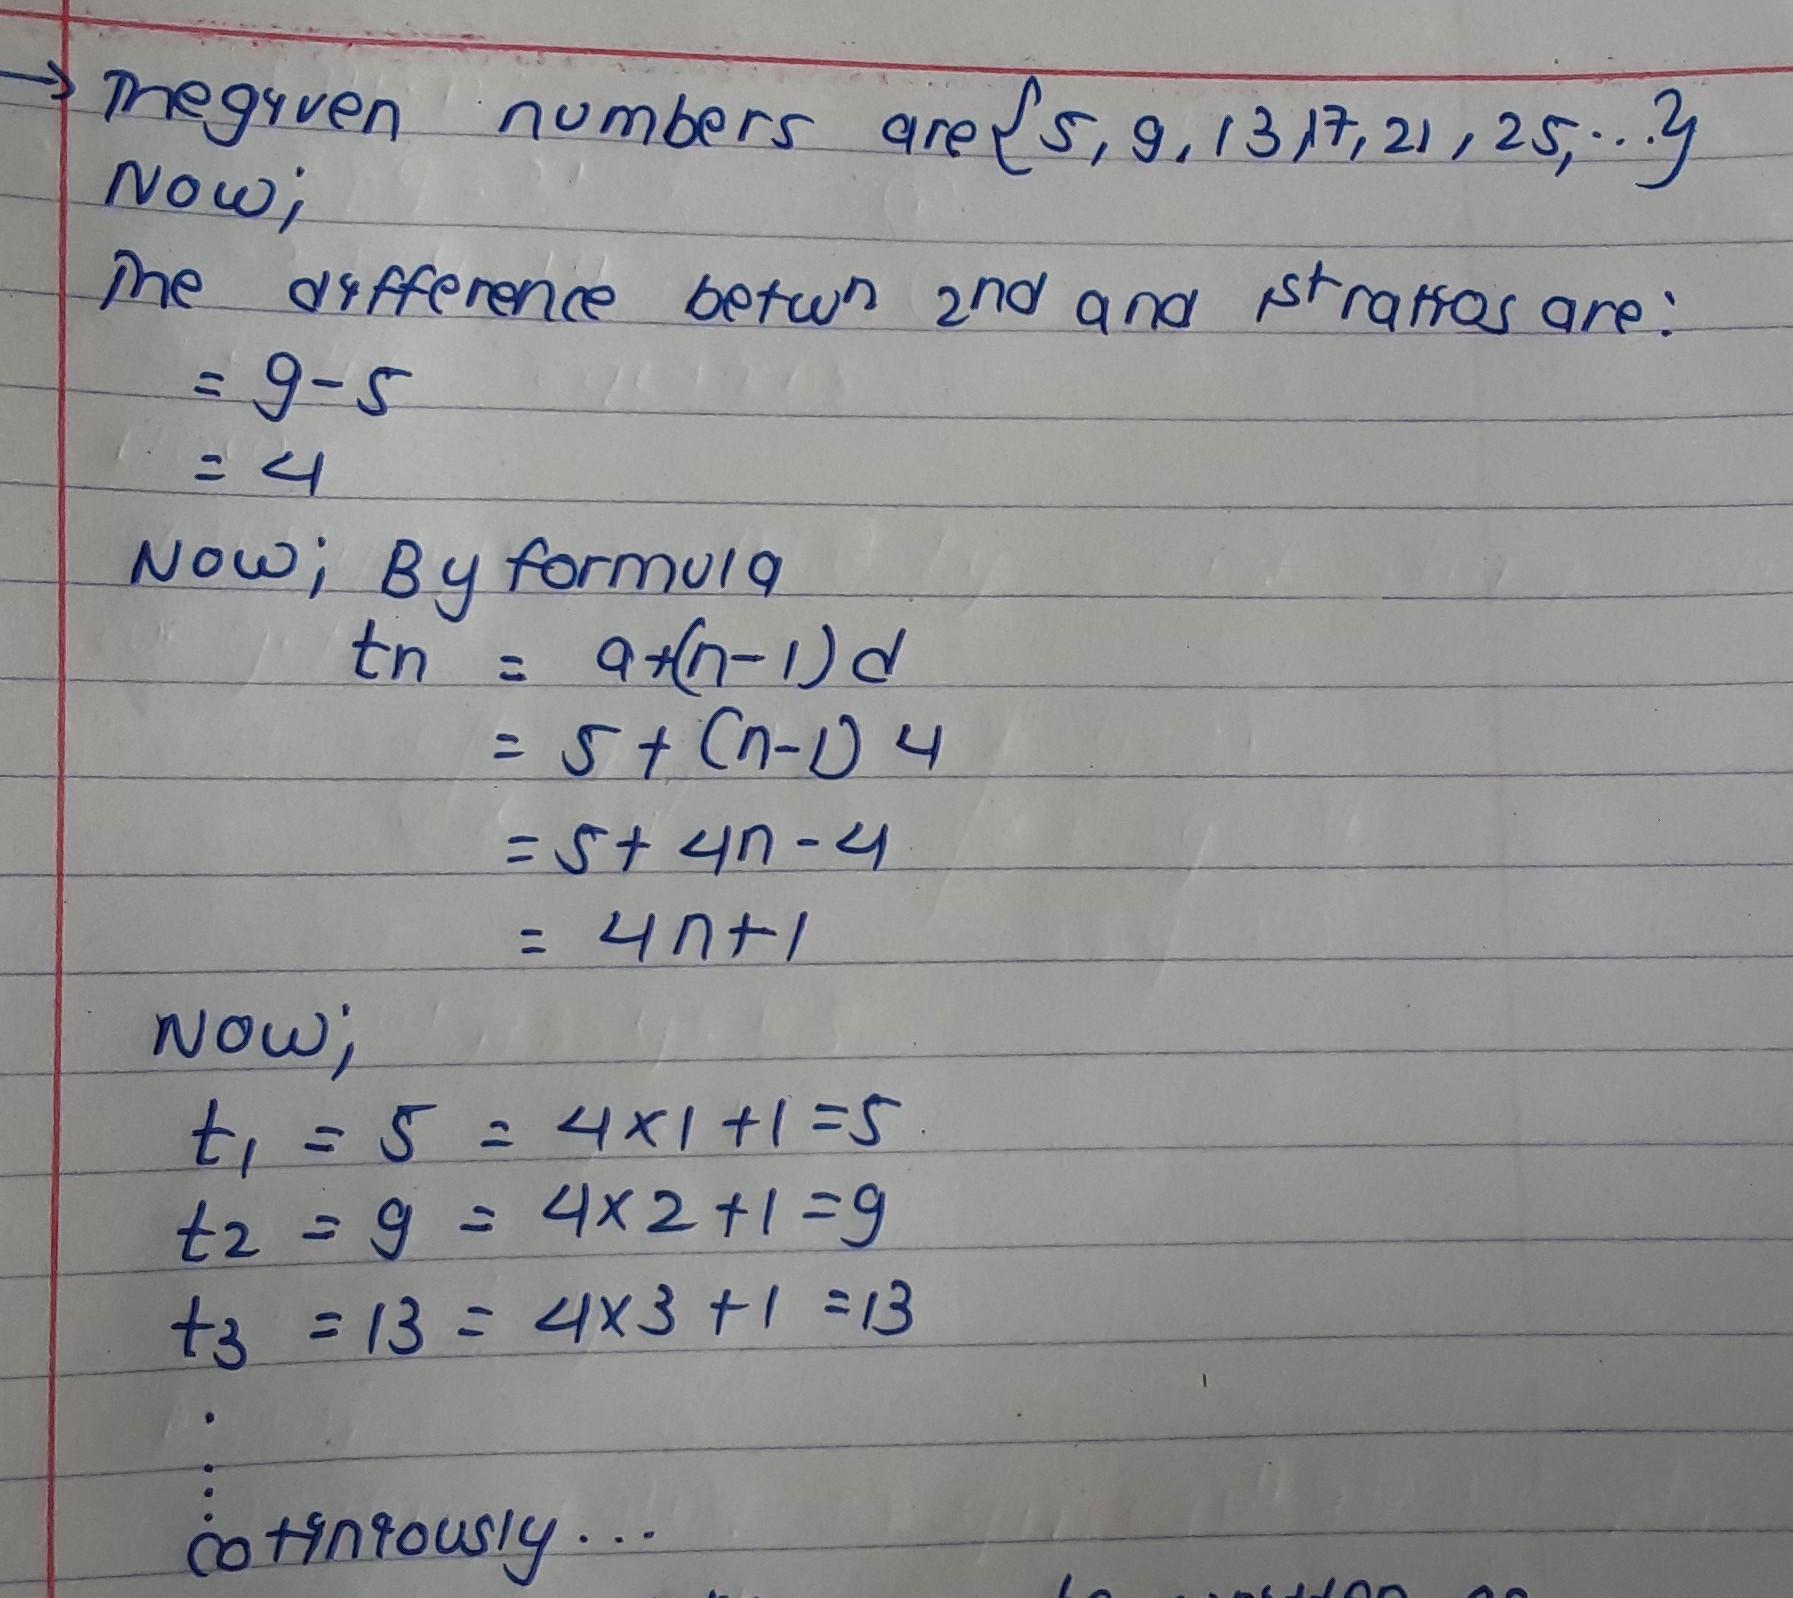 → The given numbers are {5, 9, 13, 17, 21, 25, ...}
Now;
The difference betwn 2nd and 1st ratios are:
= 9-5
= 4
Now; By formula
tn = a+(n-1)d
= 5+(n-1)4
= 5+4n-4
= 4n+1
Now;
t1 = 5 = 4×1+1=5
t2 = 9 = 4×2+1=9
t3 = 13 = 4×3+1=13
.
:
cotiniously...